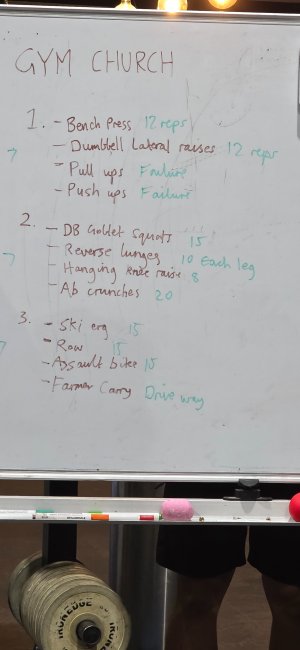 GYM CHURCH
1. - Bench Press 12 reps
- Dumbbell Lateral raises 12 reps
- Pull ups Failure
- Push ups Failure
2. - DB Goblet Squats 15
- Reverse lunges 10 Each leg
- Hanging knee raise 8
- Ab crunches 20
3. - Ski erg 15
- Row 15
- Assault bike 15
- Farmer Carry Drive way
IRONEDGE